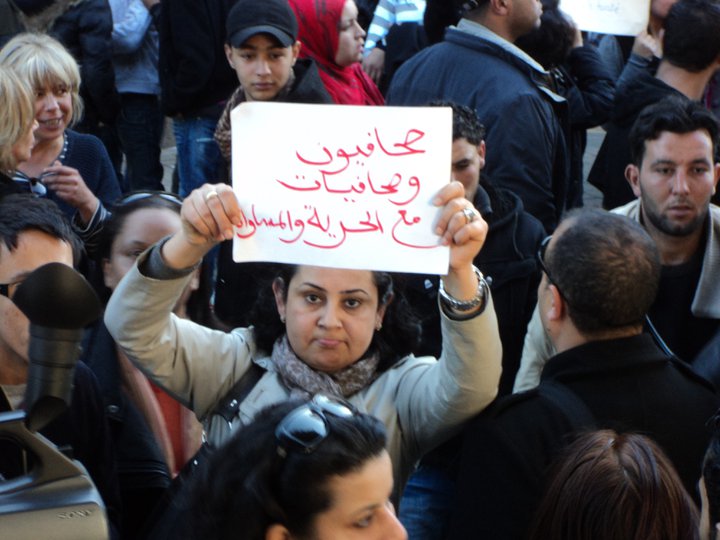 صحافيون
وصحافيات
مع الحرية والمساواة
SONY